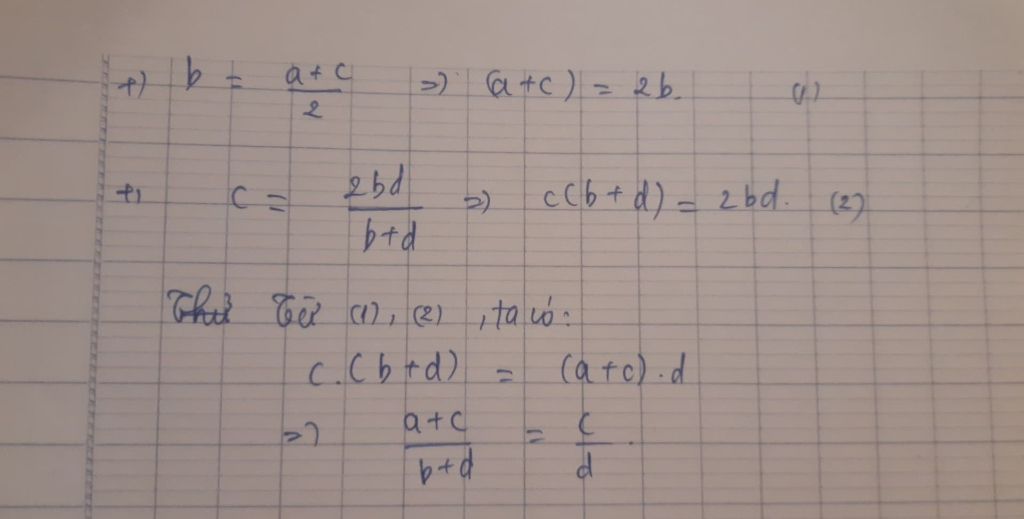 +) b = \frac{a+c}{2} => (a+c) = 2b. (1)
+) c = \frac{2bd}{b+d} => c(b+d) = 2bd. (2)
Từ (1), (2), ta có:
c.(b+d) = (a+c).d
=> \frac{a+c}{b+d} = \frac{c}{d}.